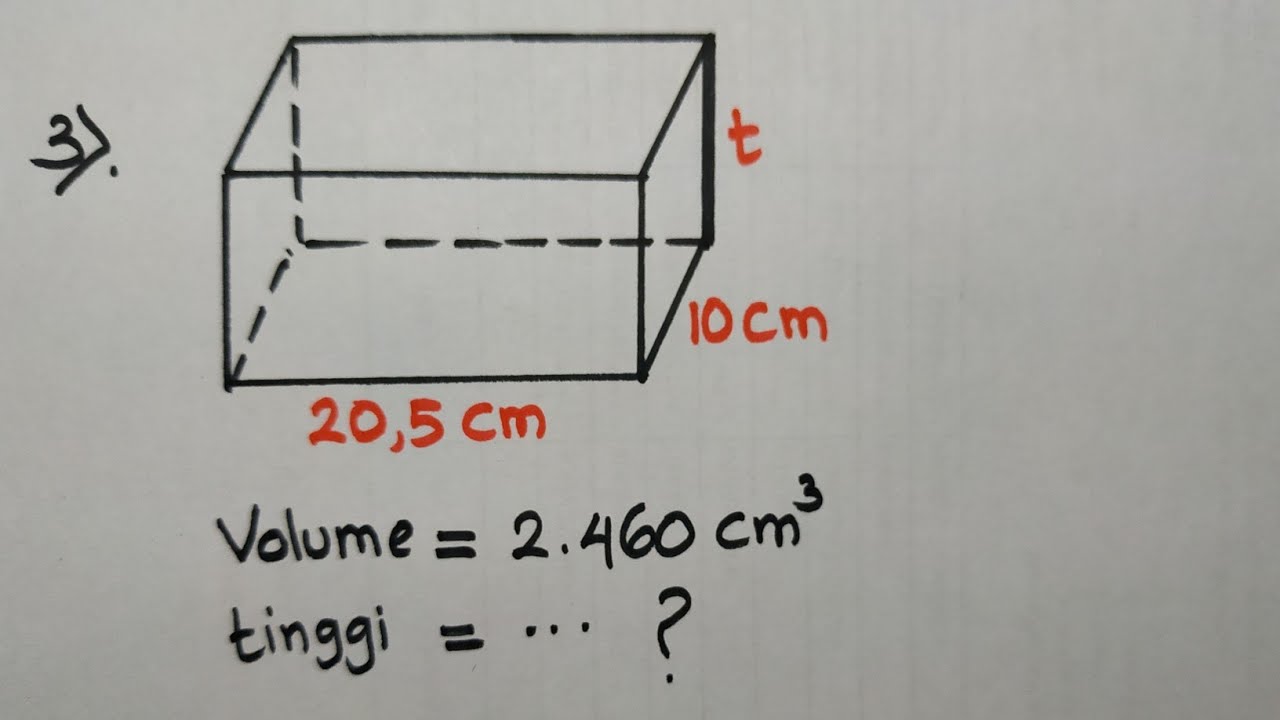 3).
t
10 cm
20,5 cm
Volume = 2.460 cm³
tinggi = ... ?